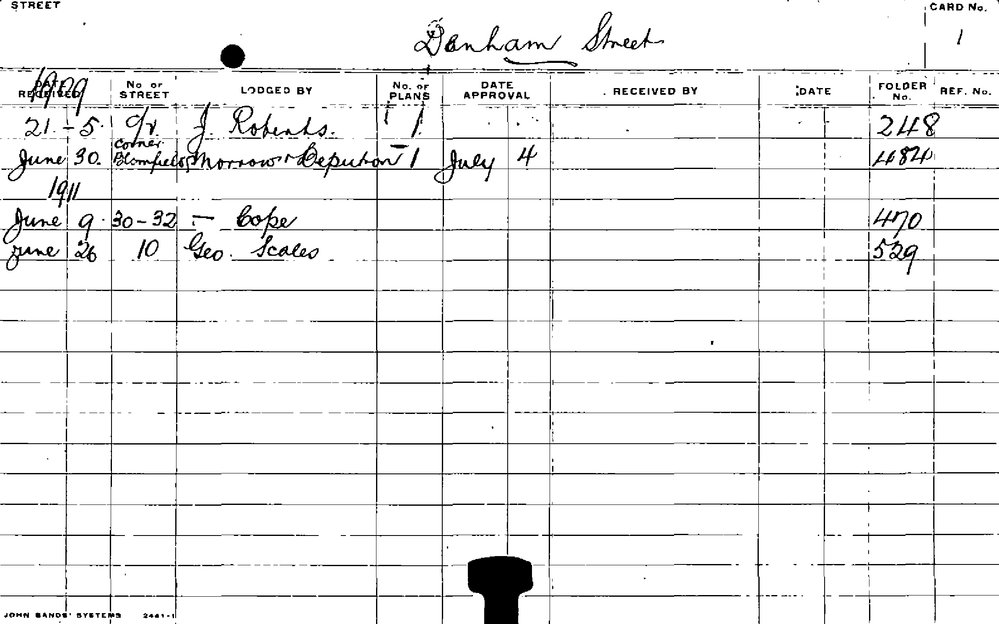 STREET
Denham Street
CARD No.
1
1909
DATE RECEIVED No of STREET LODGED BY No. of PLANS DATE APPROVAL RECEIVED BY DATE FOLDER No. REF. No.
21 - 5 J. Roberts. 1 248
June 30. corner Blomfield Morrow & Deputron 1 July 4 484
1911
June 9 30-32 - Cope 470
June 26 10 Geo. Scales 529
JOHN SANDS' SYSTEMS 2441-1